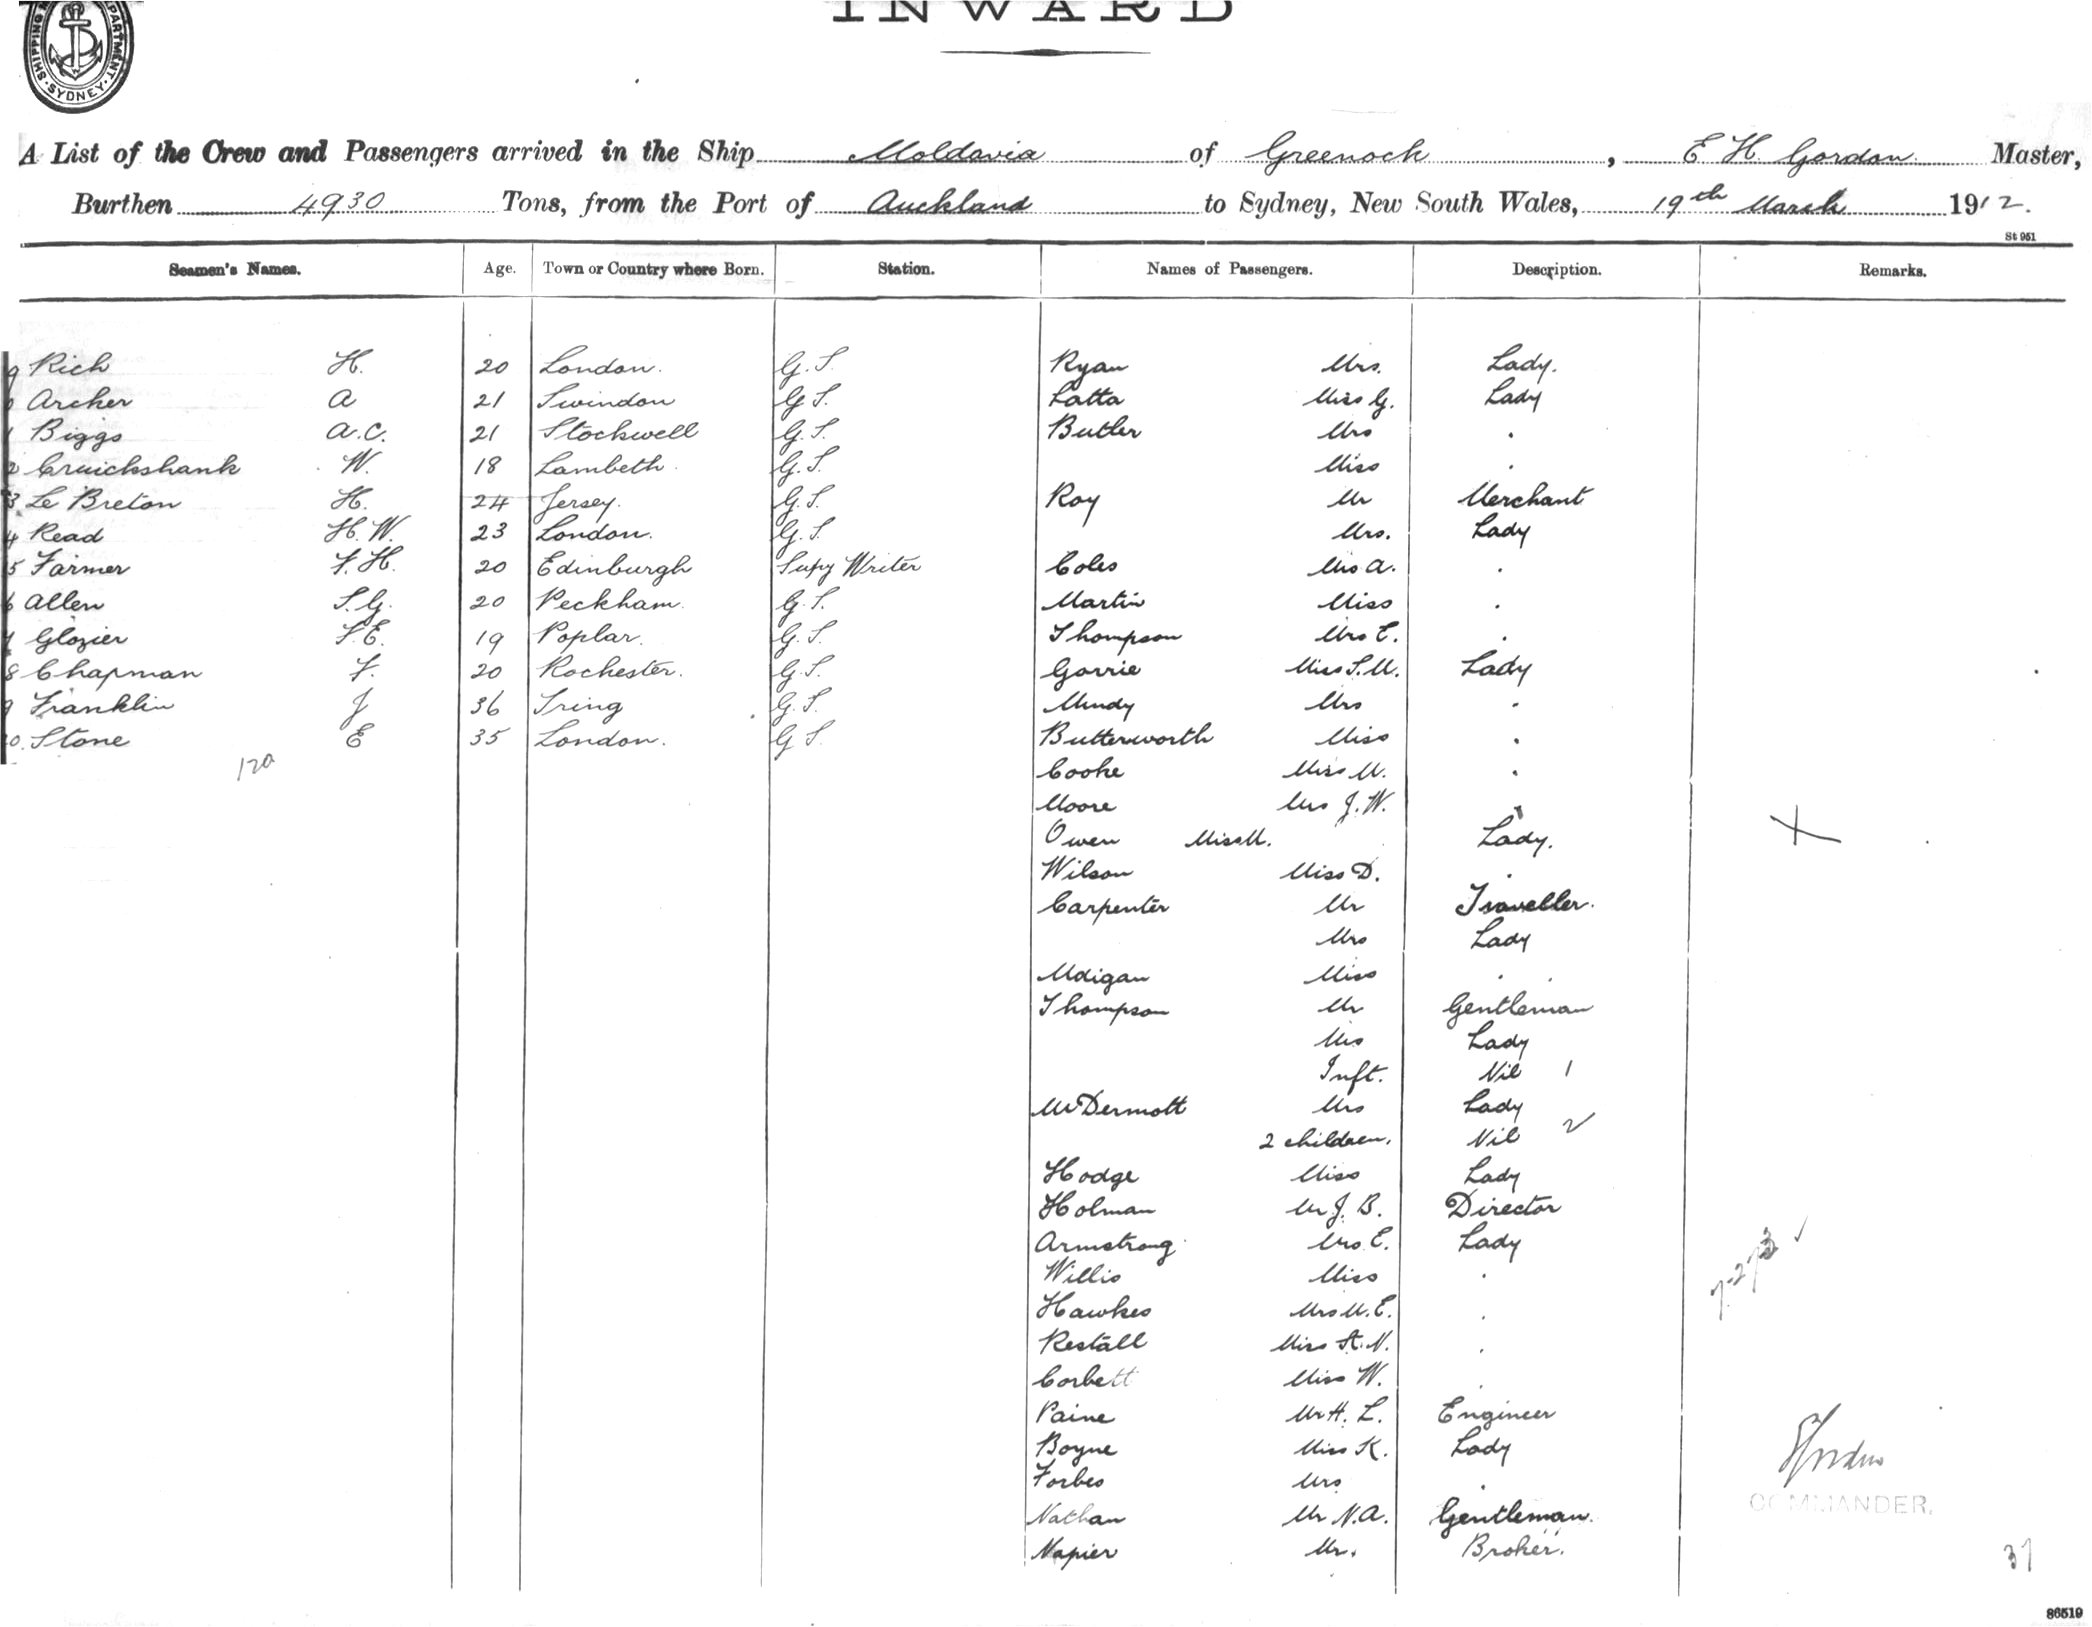 INWARD
SHIPPING DEPARTMENT SYDNEY
A List of the Crew and Passengers arrived in the Ship Moldavia of Greenock, E H Gordon Master,
Burthen 4930 Tons, from the Port of Auckland to Sydney, New South Wales, 19th March 1912.
St 951
Seamen's Names. Age. Town or Country where Born. Station. Names of Passengers. Description. Remarks.
9 Rich H. 20 London. G.S. Ryan Mrs. Lady.
0 Archer A 21 Swindon G S. Latta Miss G. Lady
1 Biggs A.C. 21 Stockwell G.S. Butler Mrs .
2 Cruickshank W. 18 Lambeth. G.S. Miss .
3 Le Breton H. 24 Jersey. G.S. Roy Mr Merchant
4 Read H.W. 23 London. G.S. Mrs. Lady
5 Farmer F.H. 20 Edinburgh Supy Writer Coles Mrs A. .
6 Allen S.G. 20 Peckham. G.S. Martin Miss .
7 Glozier F.E. 19 Poplar. G.S. Thompson Mrs E. .
8 Chapman F. 20 Rochester. G.S. Gorrie Miss S.M. Lady
9 Franklin J 36 Tring G.S. Mundy Mrs .
0. Stone E 35 London. G S. Butterworth Miss .
120 Cooke Miss M. .
Moore Mrs J.W. "
Owen Miss M. Lady.
Wilson Miss D. .
Carpenter Mr Traveller.
Mrs Lady
Miss .
Thompson Mr Gentleman
Mrs Lady
Inft. Nil 1
McDermott Mrs Lady
2 children. Nil 2
Hodge Miss Lady
Holman Mr J.B. Director
Armstrong Mrs E. Lady
Willis Miss .
Hawkes Mrs M.E. .
Restall Miss A.N. .
Corbett Miss W. .
Paine Mr H.L. Engineer
Boyne Miss K. Lady
Forbes Mrs .
Nathan Mr N.A. Gentleman.
COMMANDER.
Napier Mr. Broker.
37
86519